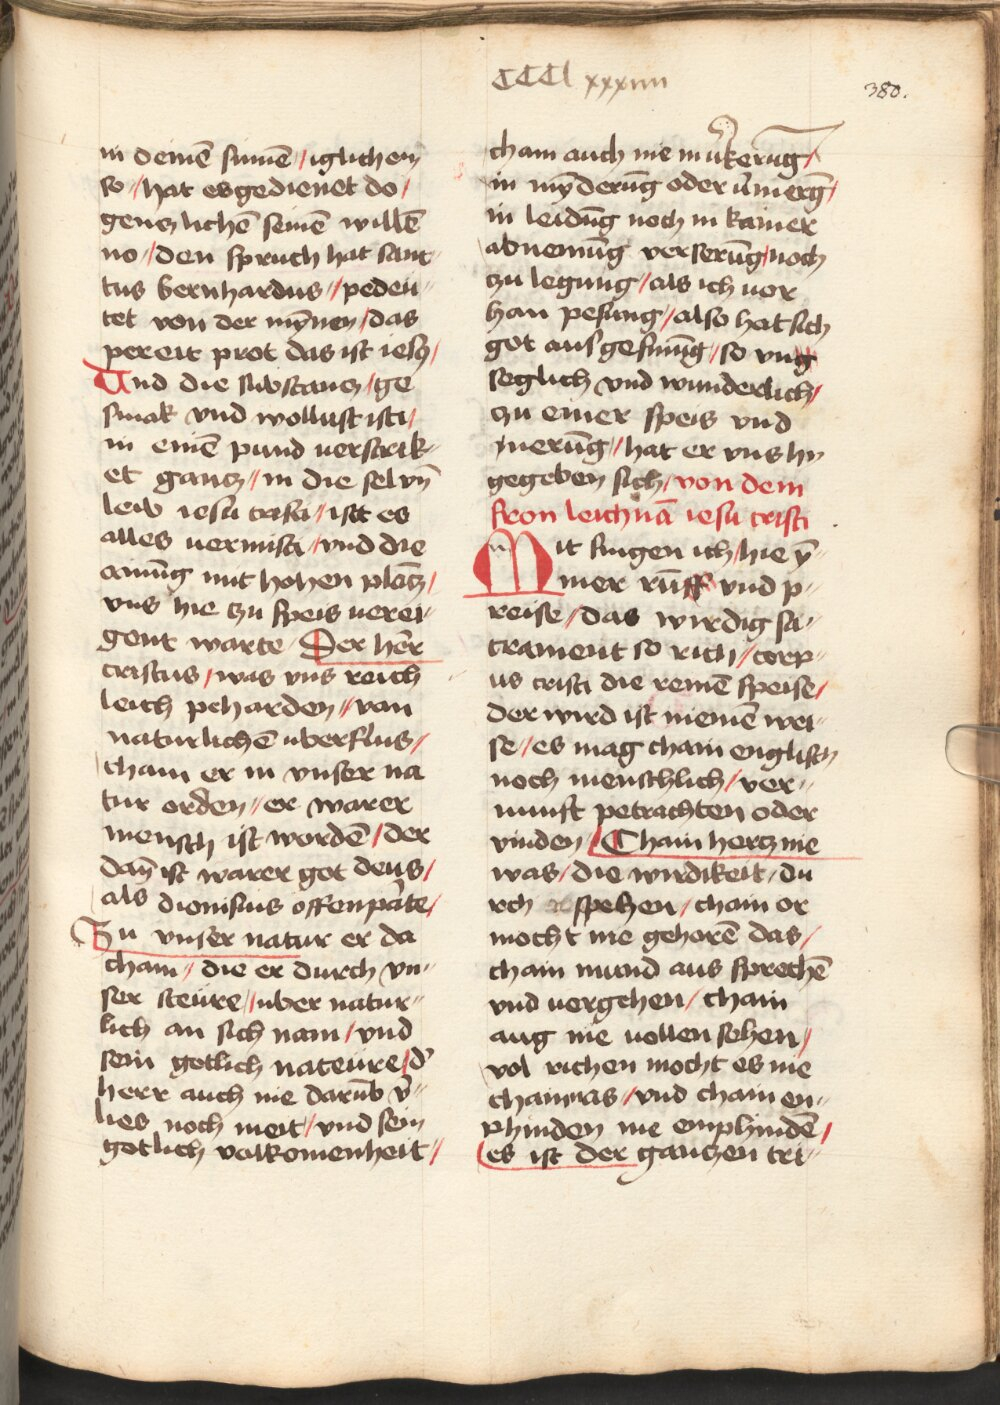 CCCl xxxiiii
380.
in deinē sinnē / iglichen
so / hat es gedienet do /
genczlichē seinē willē
no / den spruch hat sant
tus bernhardus // pedeu
tet von der mȳnen / das
pereit prot das ist iesꝫ /
Und die substancz / ge
smak vnd wollust isti /
in einē pund uerstrik
et gancz // in die sel vn̄
leib iesu cristi / ist es
alles uermist / vnd die
ainūg mit hohen placz /
vns hie zu speis uerei
gent warte / Der herr
cristus / was vns reich
leich pcharden // van
naturlichē uberflus /
cham er in vnser na
tur orden // er warer
mensch ist wordē / der
dan̄ ist warer got deus /
als dionisius offenpāte /
Zu vnser natur er da
cham / die er durch vn
ser steure / uber natur
lich an sich nam / vnd
sein gotlich nateure / d'
herr auch nie darūb v'
lies noch meit / vnd sein
gotlich volkomenheit //
cham auch nie in v'kerūg /
in mȳderūg oder v'nierḡ /
in leidūg noch in kainer
abnemūg verserūg / noch
zu legung / als ich uor
han pesung / also hat sich
got aus gesinnūg / so vn̄
seglich vnd wunderlich /
zu einer speis vnd
nierūg / hat er vns hy
gegeben sich / von dem
fron leichnā iesu cristi
Mit singen ich / hie ȳ
mer rūff vnd p
reise / das wirdig sa
crament so rich / corp
us cristi die reinē speise /
der wird ist niemē wei
se / es mag cham englisch
noch menschlich / ver
nunft petrachten oder
vinden / Cham hercz nie
was / die wirdikeit / du
rch spehen / cham or
mocht nie gehorē das /
cham mund aus sprechē
vnd uergehen / cham
aug nie uollen sehen /
vol richen mocht es nie
cham nas // vnd cham en
phinden nie emphindē /
es ist der ganczen tri